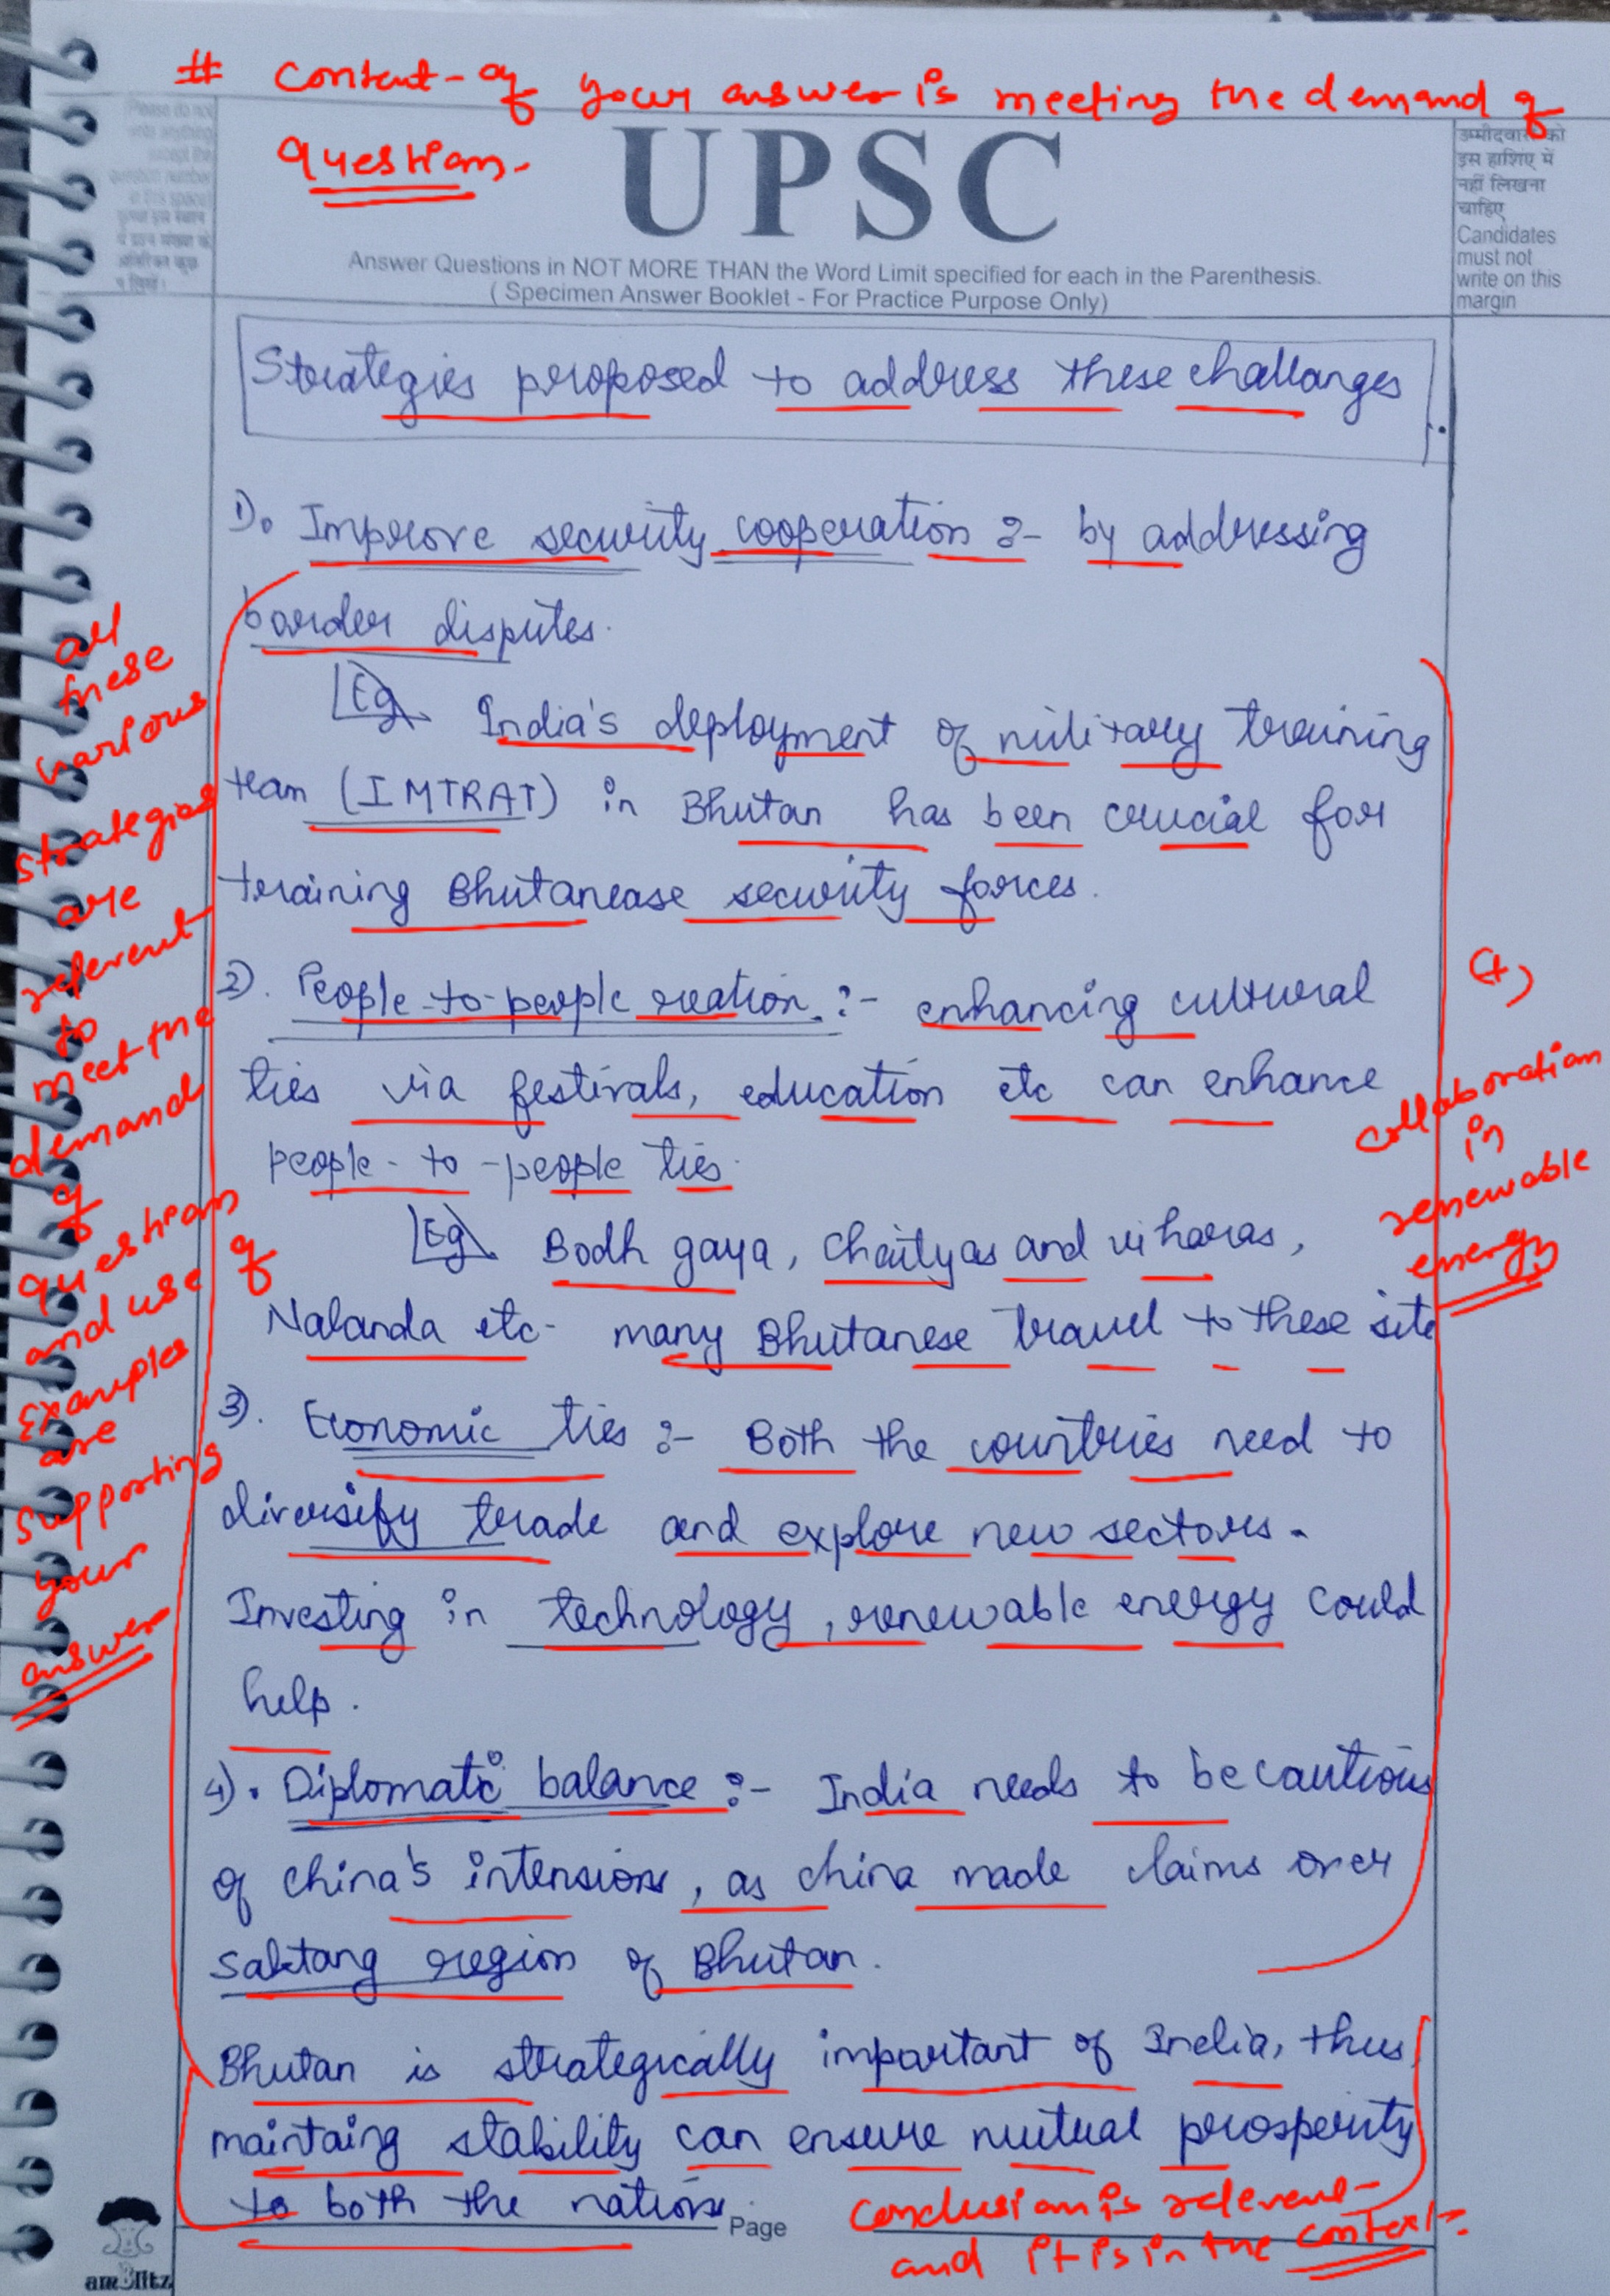 # Content of your answer is meeting the demand of
question.
UPSC
Answer Questions in NOT MORE THAN the Word Limit specified for each in the Parenthesis.
( Specimen Answer Booklet - For Practice Purpose Only)
उम्मीदवारों को
इस हाशिए में
नहीं लिखना
चाहिए
Candidates
must not
write on this
margin
Strategies proposed to address these challanges
1). Improve security cooperation :- by addressing
border disputes.
Eg India's deployment of military training
team (IMTRAT) in Bhutan has been crucial for
training Bhutanease security forces.
2). People-to-people reation :- enhancing cultural
ties via festivals, education etc can enhance
people-to-people ties.
Eg Bodh gaya, Chaityas and viharas,
Nalanda etc- many Bhutanese travel to these site
3). Economic ties :- Both the countries need to
diversify trade and explore new sectors.
Investing in technology, renewable energy could
help.
4). Diplomatic balance :- India needs to be cautious
of china's intensions, as china made claims over
Saktang region of Bhutan.
Bhutan is strategically important of India, thus
maintaing stability can ensure mutual prosperity
to both the nations.
all
these
various
strategies
are
relevent
to
meet the
demand
of
question
and use of
Examples
are
supporting
your
answer
(+)
collaboration
in
renewable
energy
Conclusion is relevent
and it is in the context.
Page